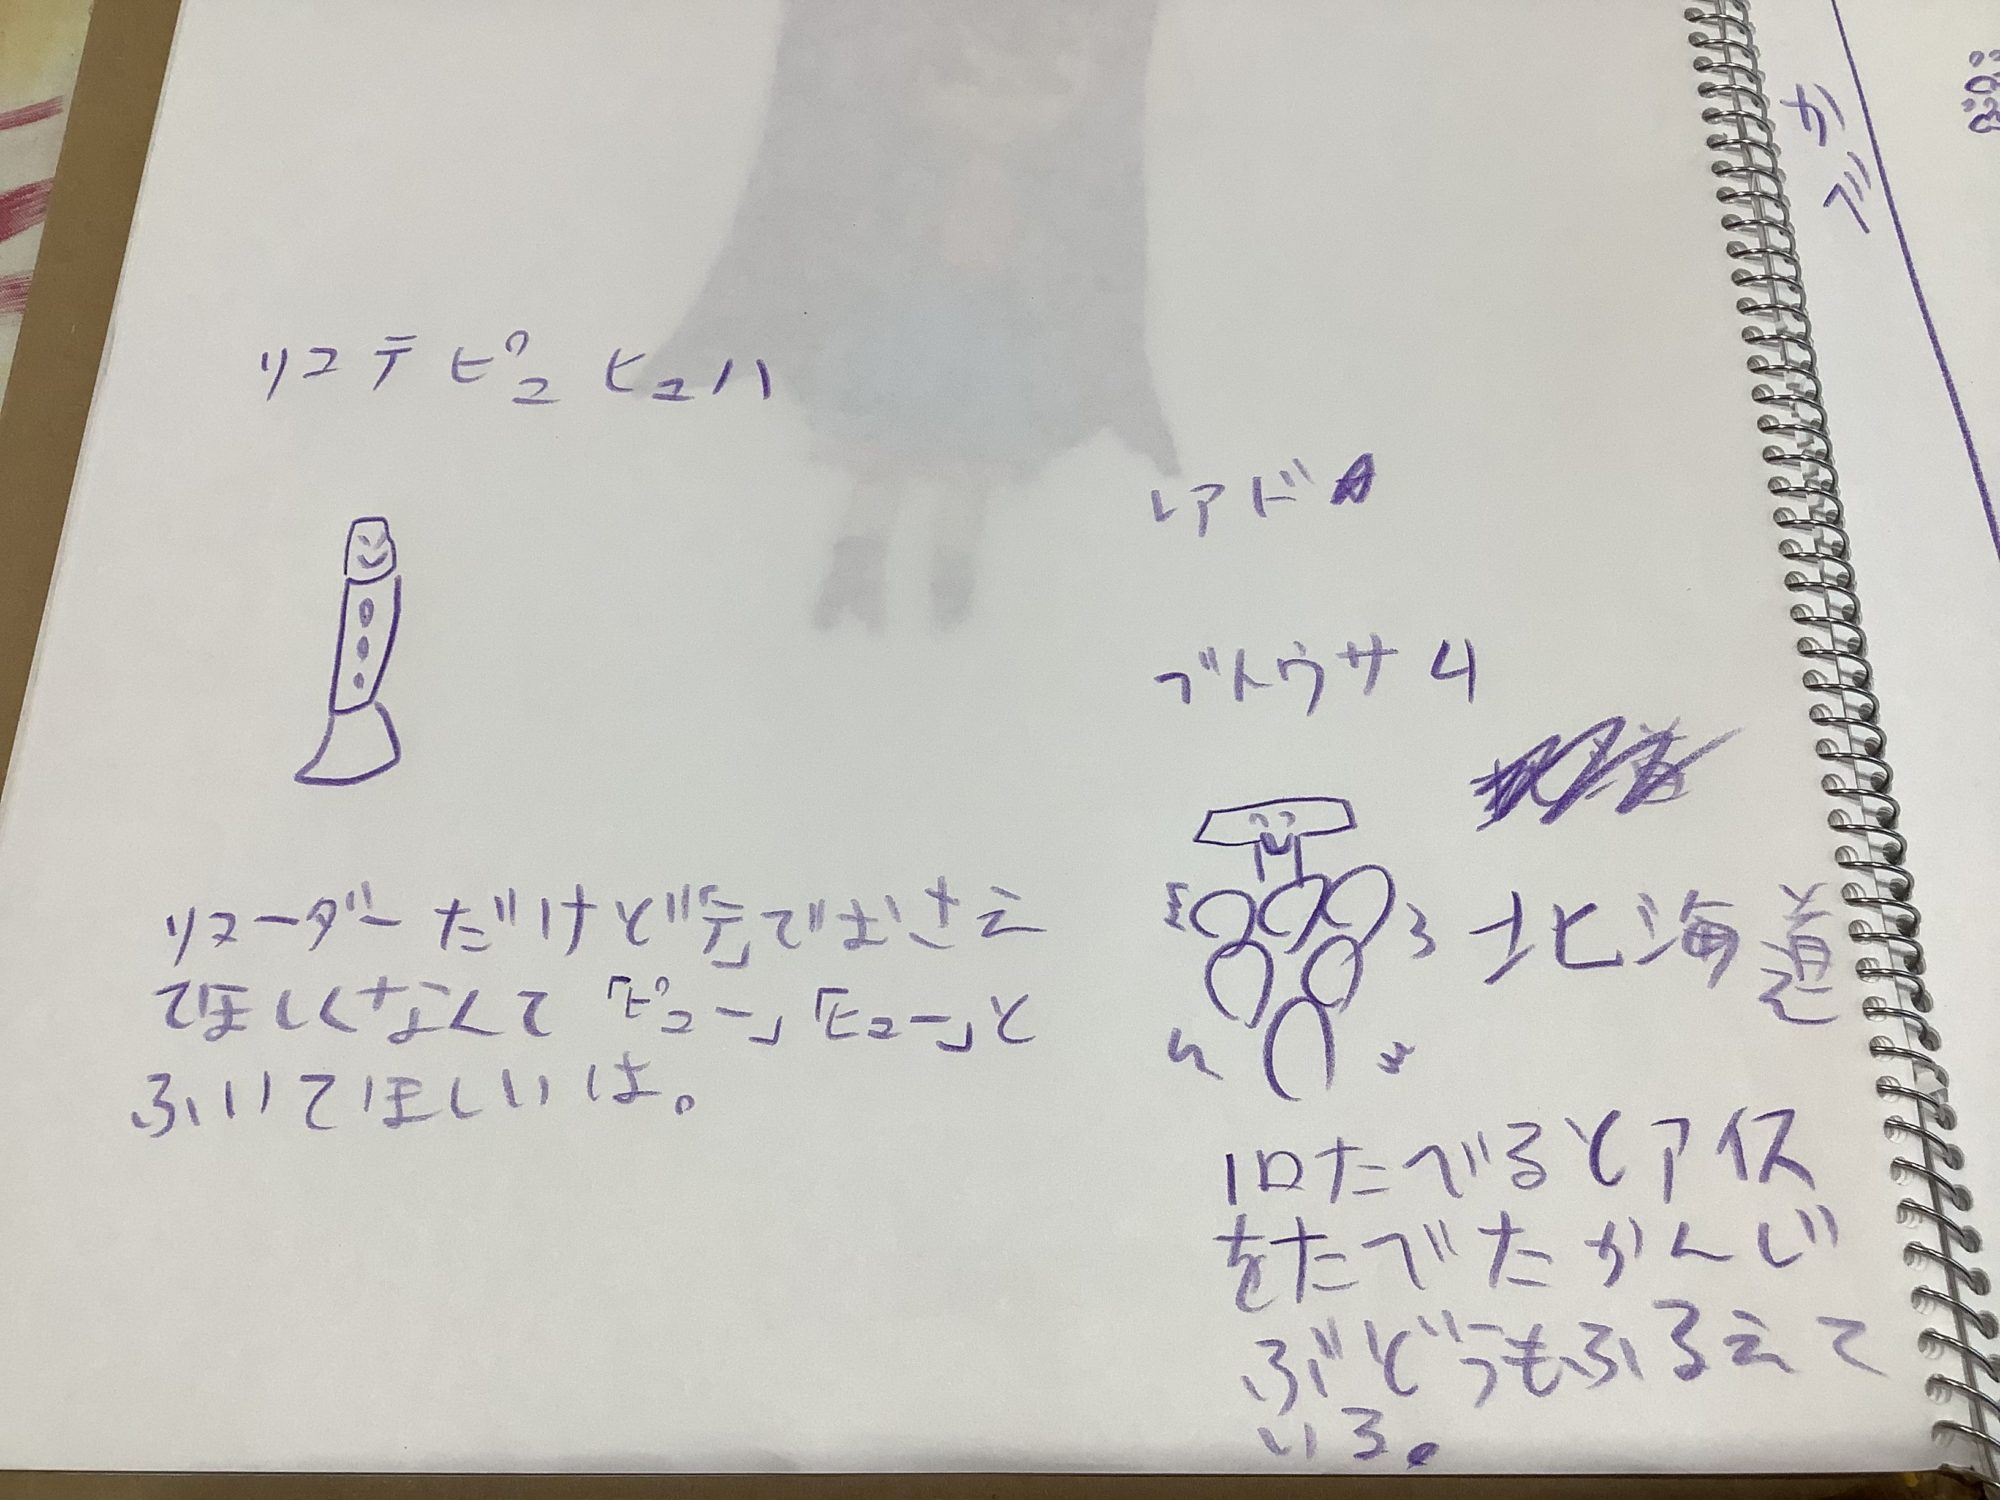 リコテピュヒュハ
リコーダーだけど「テ」でおさえ
てほしくなくて「ピュー」「ヒュー」と
ふいてほしいは。
レアド
ブトウサム
北海道
1口たべるとアイス
をたべたかんじ
ぶどうもふるえて
いる。